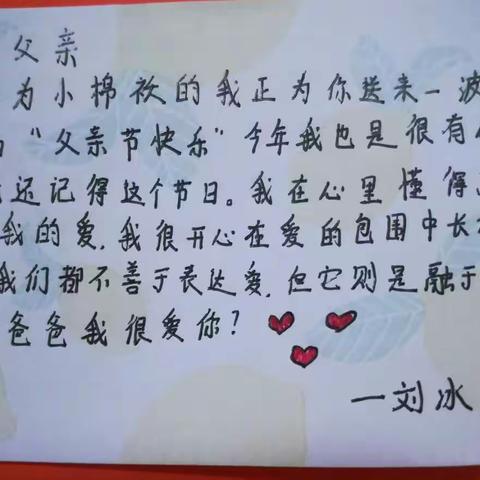 父亲
为小棉袄的我正为你送来一波
"父亲节快乐"今年我也是很有
还记得这个节日。我在心里懂得
我的爱,我很开心在爱的包围中长
我们都不善于表达爱,但它则是融于
爸爸我很爱你?
一刘冰